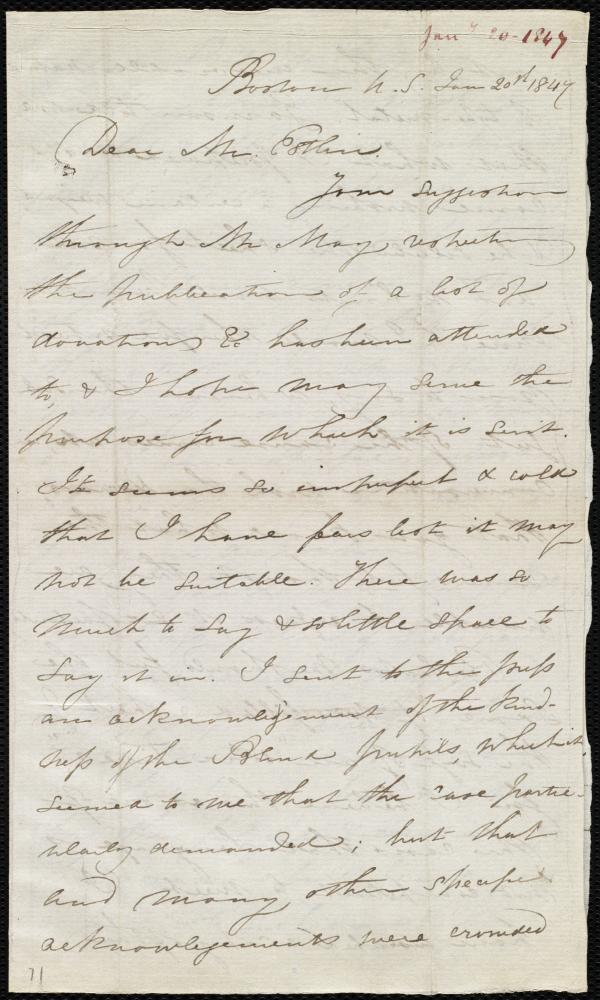 Jan y 20 - 1847
Boston U. S. Jan 20th 1847
Dear Mr. Estlin.
Your suggestion
through Mr May, respecting
the publication of a list of
donations &c has been attended
to, & I hope may serve the
purpose for which it is sent.
It seems so imperfect & cold
that I have fears lest it may
not be suitable. There was so
much to say & so little space to
say it in. I sent to the press
an acknowlegement of the kind-
ness of the Blind pupils, which it
seemed to me that the case partic-
ularly demanded; but that
and many other specific
acknowlegements were crowded
71